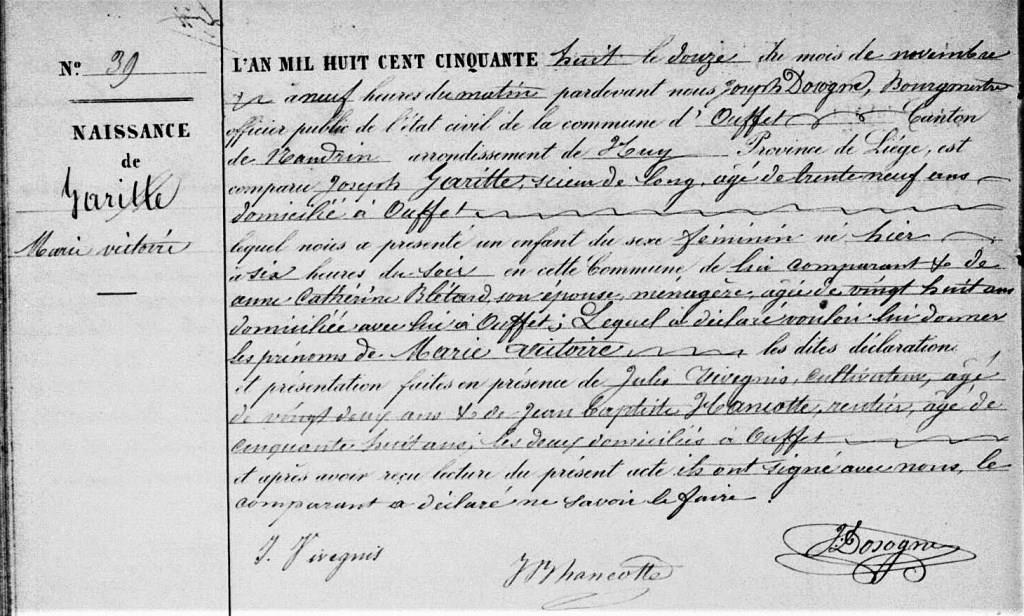 N° 39
NAISSANCE
de
Garitte
Marie victoire
L'AN MIL HUIT CENT CINQUANTE huit le douze du mois de novembre
à neuf heures du matin pardevant nous Joseph Dosogne, Bourgmestre
officier public de l'état civil de la commune d'Ouffet Canton
de Nandrin arrondissement de Huy Province de Liége, est
comparu Joseph Garitte, scieur de long, agé de trente neuf ans
domicilié à Ouffet
lequel nous a présenté un enfant du sexe féminin né hier
à six heures du soir en cette Commune de lui comparant & de
anne Cathérine Blétard, son épouse, ménagère, agée de vingt huit ans
domiciliée avec lui à Ouffet; Lequel a déclaré vouloir lui donner
les prénoms de Marie victoire, les dites déclaration
et présentation faites en présence de Jules Vivegnis, cultivateur, âgé
de vingt deux ans & de Jean Baptiste Hancotte, rentier, âgé de
cinquante huit ans; les deux domiciliés à Ouffet
et après avoir reçu lecture du présent acte ils ont signé avec nous, le
comparant a déclaré ne savoir le faire.
J. Vivegnis
JB hancotte
J Dosogne